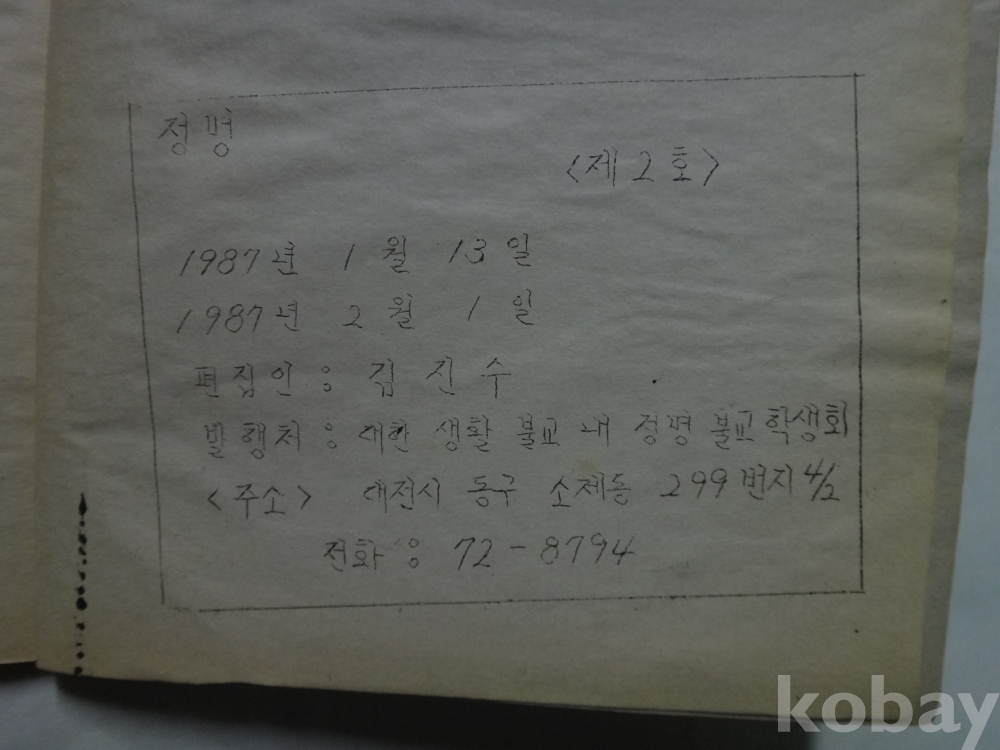 정명
<제 2 호>
1987년 1 월 13 일
1987년 2 월 1 일
편집인 : 김 진 수
발행처 : 대한 생활 불교 내 정명 불교 학생회
<주소> 대전시 동구 소제동 299 번지 4/2
전화 : 72 - 8794
kobay